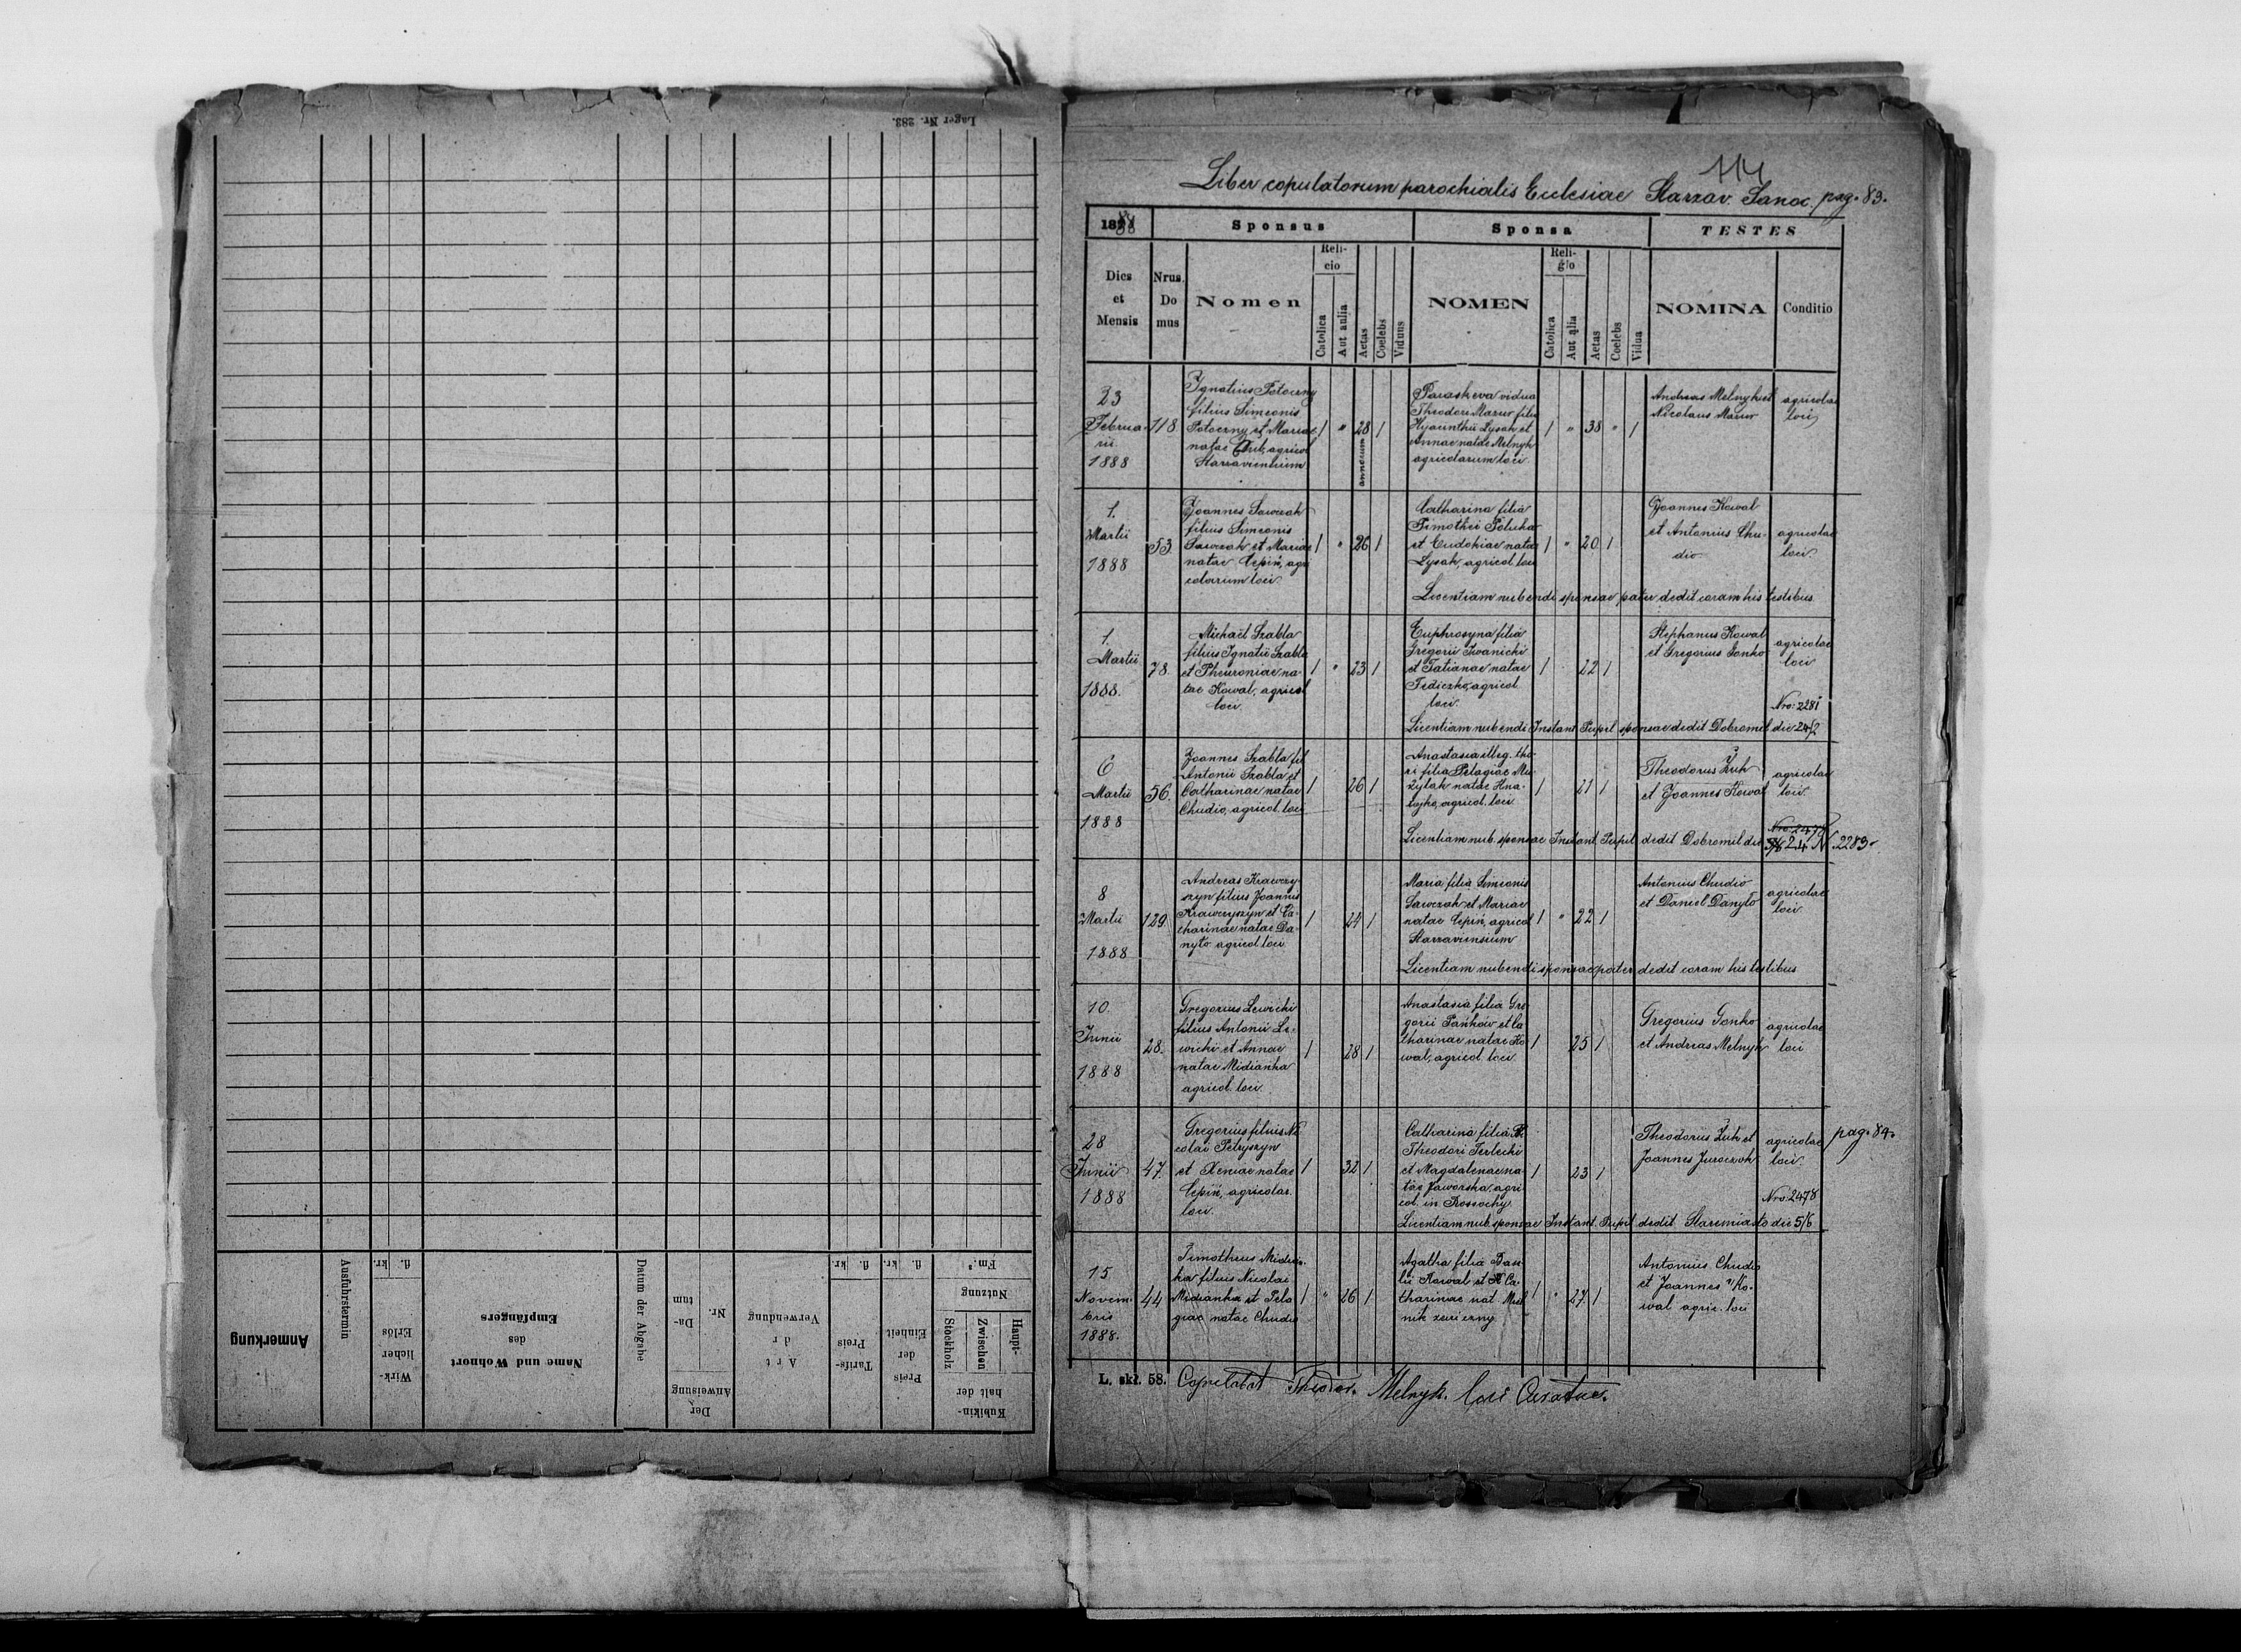 Lager Nr. 283.
Anmerkung
Ausfuhrstermin
kr. fl.
Wirk-
licher
Erlös
Name und Wohnort
des
Empfängers
Datum der Abgabe
Der
Anweisung
Da-
tum
Nr.
Art
der
Verwendung
kr. fl.
Tarifs-
Preis
kr. fl.
Preis
der
Einheit
Kubikin-
halt der
Stockholz
Zwischen
Haupt-
Nutzung
Fm.³
114
Liber copulatorum parochialis Ecclesiae Starzav. Sanoc. pag. 83.
1888
Sponsus
Sponsa
TESTES
Dies
et
Mensis
Nrus
Do
mus
Nomen
Reli-
cio
Catolica
Aut aulia
Aetas
Coelebs
Viduus
NOMEN
Reli-
gio
Catolica
Aut alia
Aetas
Coelebs
Vidua
NOMINA
Conditio
23
Februa-
rii
1888
118
Ignatius Potoczny
filius Simeonis
Potoczny et Mariae
natae agricol
Starzaviensium
1 " 28 1
annorum
Paraskeva vidua
Theodori Mazur filia
Hyacinthii Lysak et
Annae natae Melnyk
agricolarum loci
1 " 38 " 1
Andreas Melnyk et
Nicolaus Mazur
agricolae
loci
1.
Martii
1888
53.
Joannes Sawczak
filius Simeonis
Sawczak et Mariae
natae Cepiń, agri
colarum loci
1 " 26 1
Catharina filia
Timothei Poluha
et Eudokiae natae
Lysak, agricol. loci
1 " 20 1
Joannes Kowal
et Antonius Chu-
dio
agricolae
loci.
Licentiam nubendi sponsae pater dedit coram his testibus.
1.
Martii
1888.
78.
Michaël Szabla
filius Ignatii Szabla
et Pheuroniae na-
tae Kowal, agricol
loci.
1 " 23 1
Euphrosyna filia
Gregorii Iwanicki
et Tatianae natae
Fediczko, agricol
loci.
1 22 1
Stephanus Kowal
et Gregorius Gonko
agricolae
loci
Nro: 2281
Licentiam nubendi Instant. Pupil sponsae dedit Dobromil die 24/2
6
Martii
1888
56.
Joannes Szabla fil
Antonii Szabla et
Catharinae natae
Chudio, agricol. loci
1 26 1
Anastasia illeg. tho-
ri filia Pelagiae Mu-
zylak natae Hna-
tyko, agricol. loci.
1 21 1
Theodorus Żuk
et Joannes Kowal
agricolae
loci.
Nro: 2478
Licentiam nub. sponsae Instant. Pupil. dedit Dobromil die 5/6 24 N. 2283.
8
Martii
1888
129
Andreas Krawczy-
szyn filius Joannis
Krawczyszyn et Ca-
tharinae natae Da-
nyło agricol. loci.
1 24 1
Maria filia Simeonis
Sawczak et Mariae
natae Cepiń, agricol
Starzaviensium
1 " 22 1
Antonius Chudio
et Daniel Danyło
agricolae
loci
Licentiam nubendi sponsae pater dedit coram his testibus
10.
Junii
1888
28.
Gregorius Lewicki
filius Antonii Le-
wicki et Annae
natae Midianka
agricol. loci.
1 28 1
Anastasia filia Gre-
gorii Pańków et Ca
tharinae natae Ko-
wal, agricol. loci.
1 25 1
Gregorius Gonko
et Andreas Melnyk
agricolae
loci
28
Junii
1888
47.
Gregorius filius Ni
colai Petryszyn
et Xeniae natae
Cepiń, agricolar.
loci.
1 32 1
Catharina filia
Theodori Terlecki
et Magdalenae na-
tae Jaworska, agri-
col. in Rossochy.
1 23 1
Theodorus Żuk et
Joannes Juroczok
agricolae
loci.
pag. 84.
Nro: 2478
Licentiam nub. sponsae Instant. Pupil. dedit Staremiasto die 5/6
15
Novem-
bris
1888.
44
Timotheus Midian-
ka filius Nicolai
Midianka et Pela
giae natae Chudio
1 " 26 1
Agatha filia Basi-
lii Kowal et Ca-
tharinae nat
1 " 27 1
Antonius Chudio
et Joannes Ko-
wal agric. loci
L. skł. 58. Copulabat Theodor. Melnyk. loci Curatus.